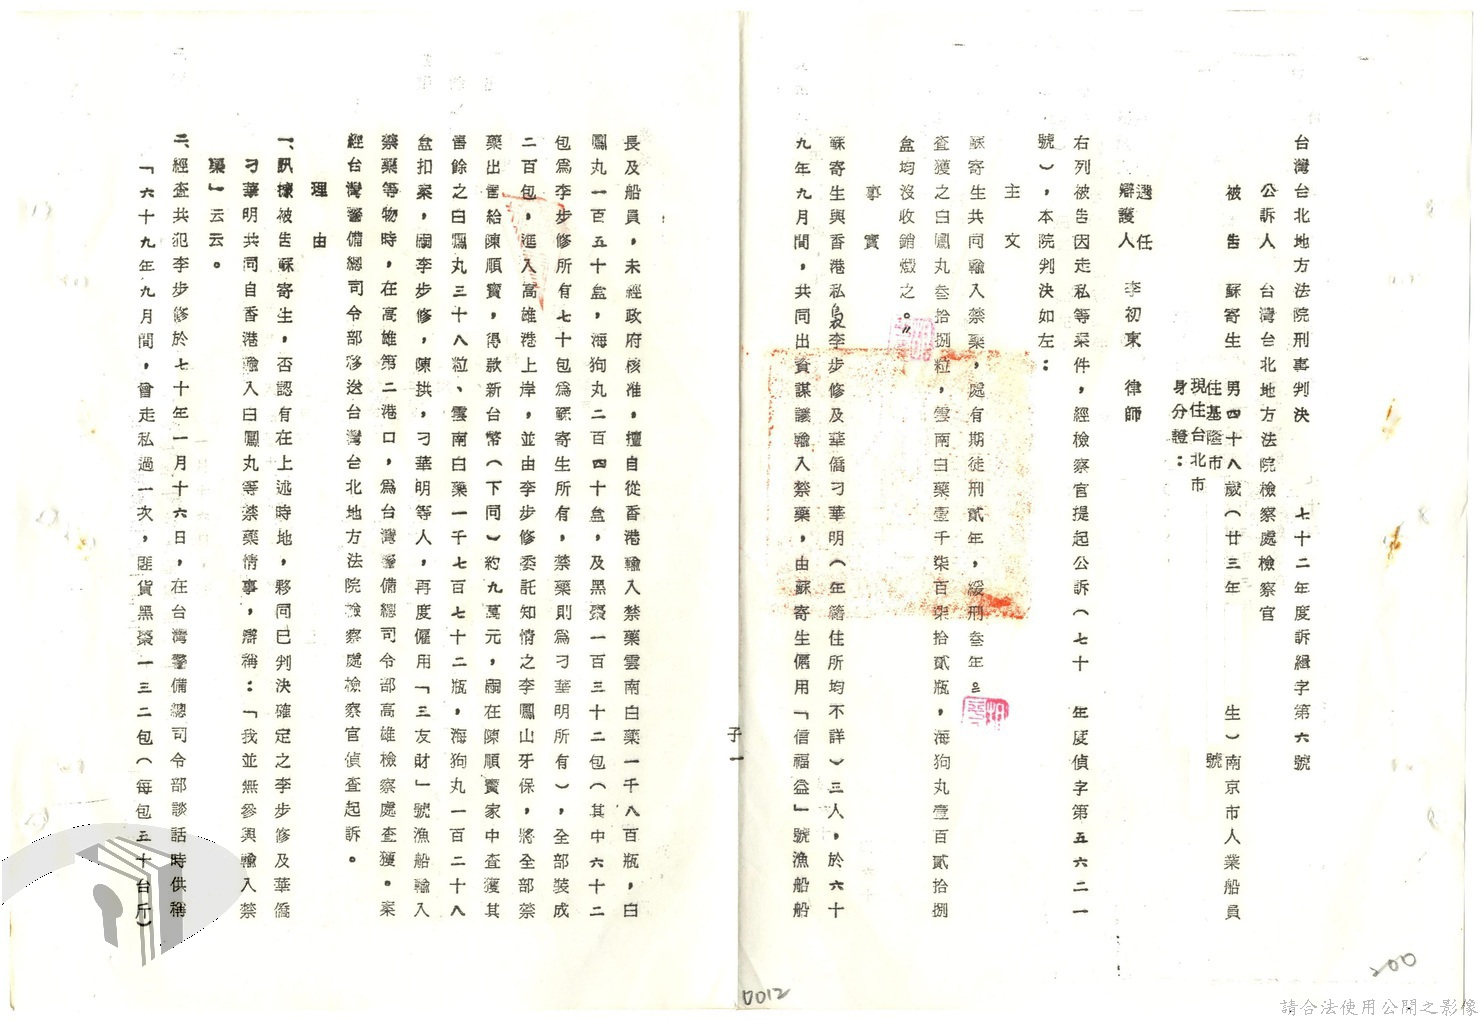 台灣台北地方法院刑事判決　七十二年度訴緝字第六號
公訴人　台灣台北地方法院檢察處檢察官
被告　蘇寄生　男四十八歲（廿三年　生）南京市人業船員
住基隆市　號
現住台北市
身分證：
選任
辯護人　李初東　律師
右列被告因走私等案件，經檢察官提起公訴（七十　年度偵字第五六二一
號），本院判決如左：
主文
蘇寄生共同輸入禁藥，處有期徒刑貳年，緩刑叁年。
查獲之白鳳丸叁拾捌粒，雲南白藥壹千柒百柒拾貳瓶，海狗丸壹百貳拾捌
盒均沒收銷燬之。
事實
蘇寄生與香港私梟李步修及華僑刁華明（年籍住所均不詳）三人，於六十
九年九月間，共同出資謀議輸入禁藥，由蘇寄生僱用「信福益」號漁船船
子一
長及船員，未經政府核准，擅自從香港輸入禁藥雲南白藥一千八百瓶，白
鳳丸一百五十盒，海狗丸二百四十盒，及黑棗一百三十二包（其中六十二
包為李步修所有七十包為蘇寄生所有，禁藥則為刁華明所有），全部裝成
二百包，運入高雄港上岸，並由李步修委託知情之李鳳山牙保，將全部禁
藥出售給陳順寶，得款新台幣（下同）約九萬元，嗣在陳順寶家中查獲其
售餘之白鳳丸三十八粒、雲南白藥一千七百七十二瓶，海狗丸一百二十八
盒扣案，嗣李步修，陳拱，刁華明等人，再度僱用「三友財」號漁船輸入
禁藥等物時，在高雄第二港口，為台灣警備總司令部高雄檢察處查獲。案
經台灣警備總司令部移送台灣台北地方法院檢察處檢察官偵查起訴。
理由
一、訊據被告蘇寄生，否認有在上述時地，夥同已判決確定之李步修及華僑
刁華明共同自香港輸入白鳳丸等禁藥情事，辯稱：「我並無參與輸入禁
藥」云云。
二、經查共犯李步修於七十年一月十六日，在台灣警備總司令部談話時供稱
「六十九年九月間，曾走私過一次，匪貨黑棗一三二包（每包五十台斤）
0012
200
請合法使用公開之影像